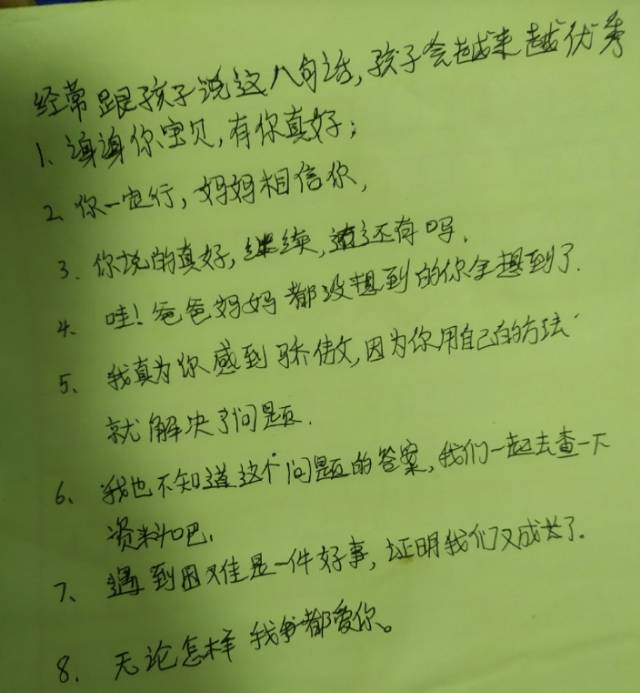 经常跟孩子说这八句话,孩子会越来越优秀
1、谢谢你宝贝,有你真好;
2、你一定行,妈妈相信你,
3.你说的真好,继续,还有吗.
4、哇!爸爸妈妈都没想到的你全想到了.
5、我真为你感到骄傲,因为你用自己的方法
就解决了问题.
6、我也不知道这个问题的答案,我们一起去查一下
资料吧.
7、遇到困难是一件好事,证明我们又成长了.
8.无论怎样我都爱你。